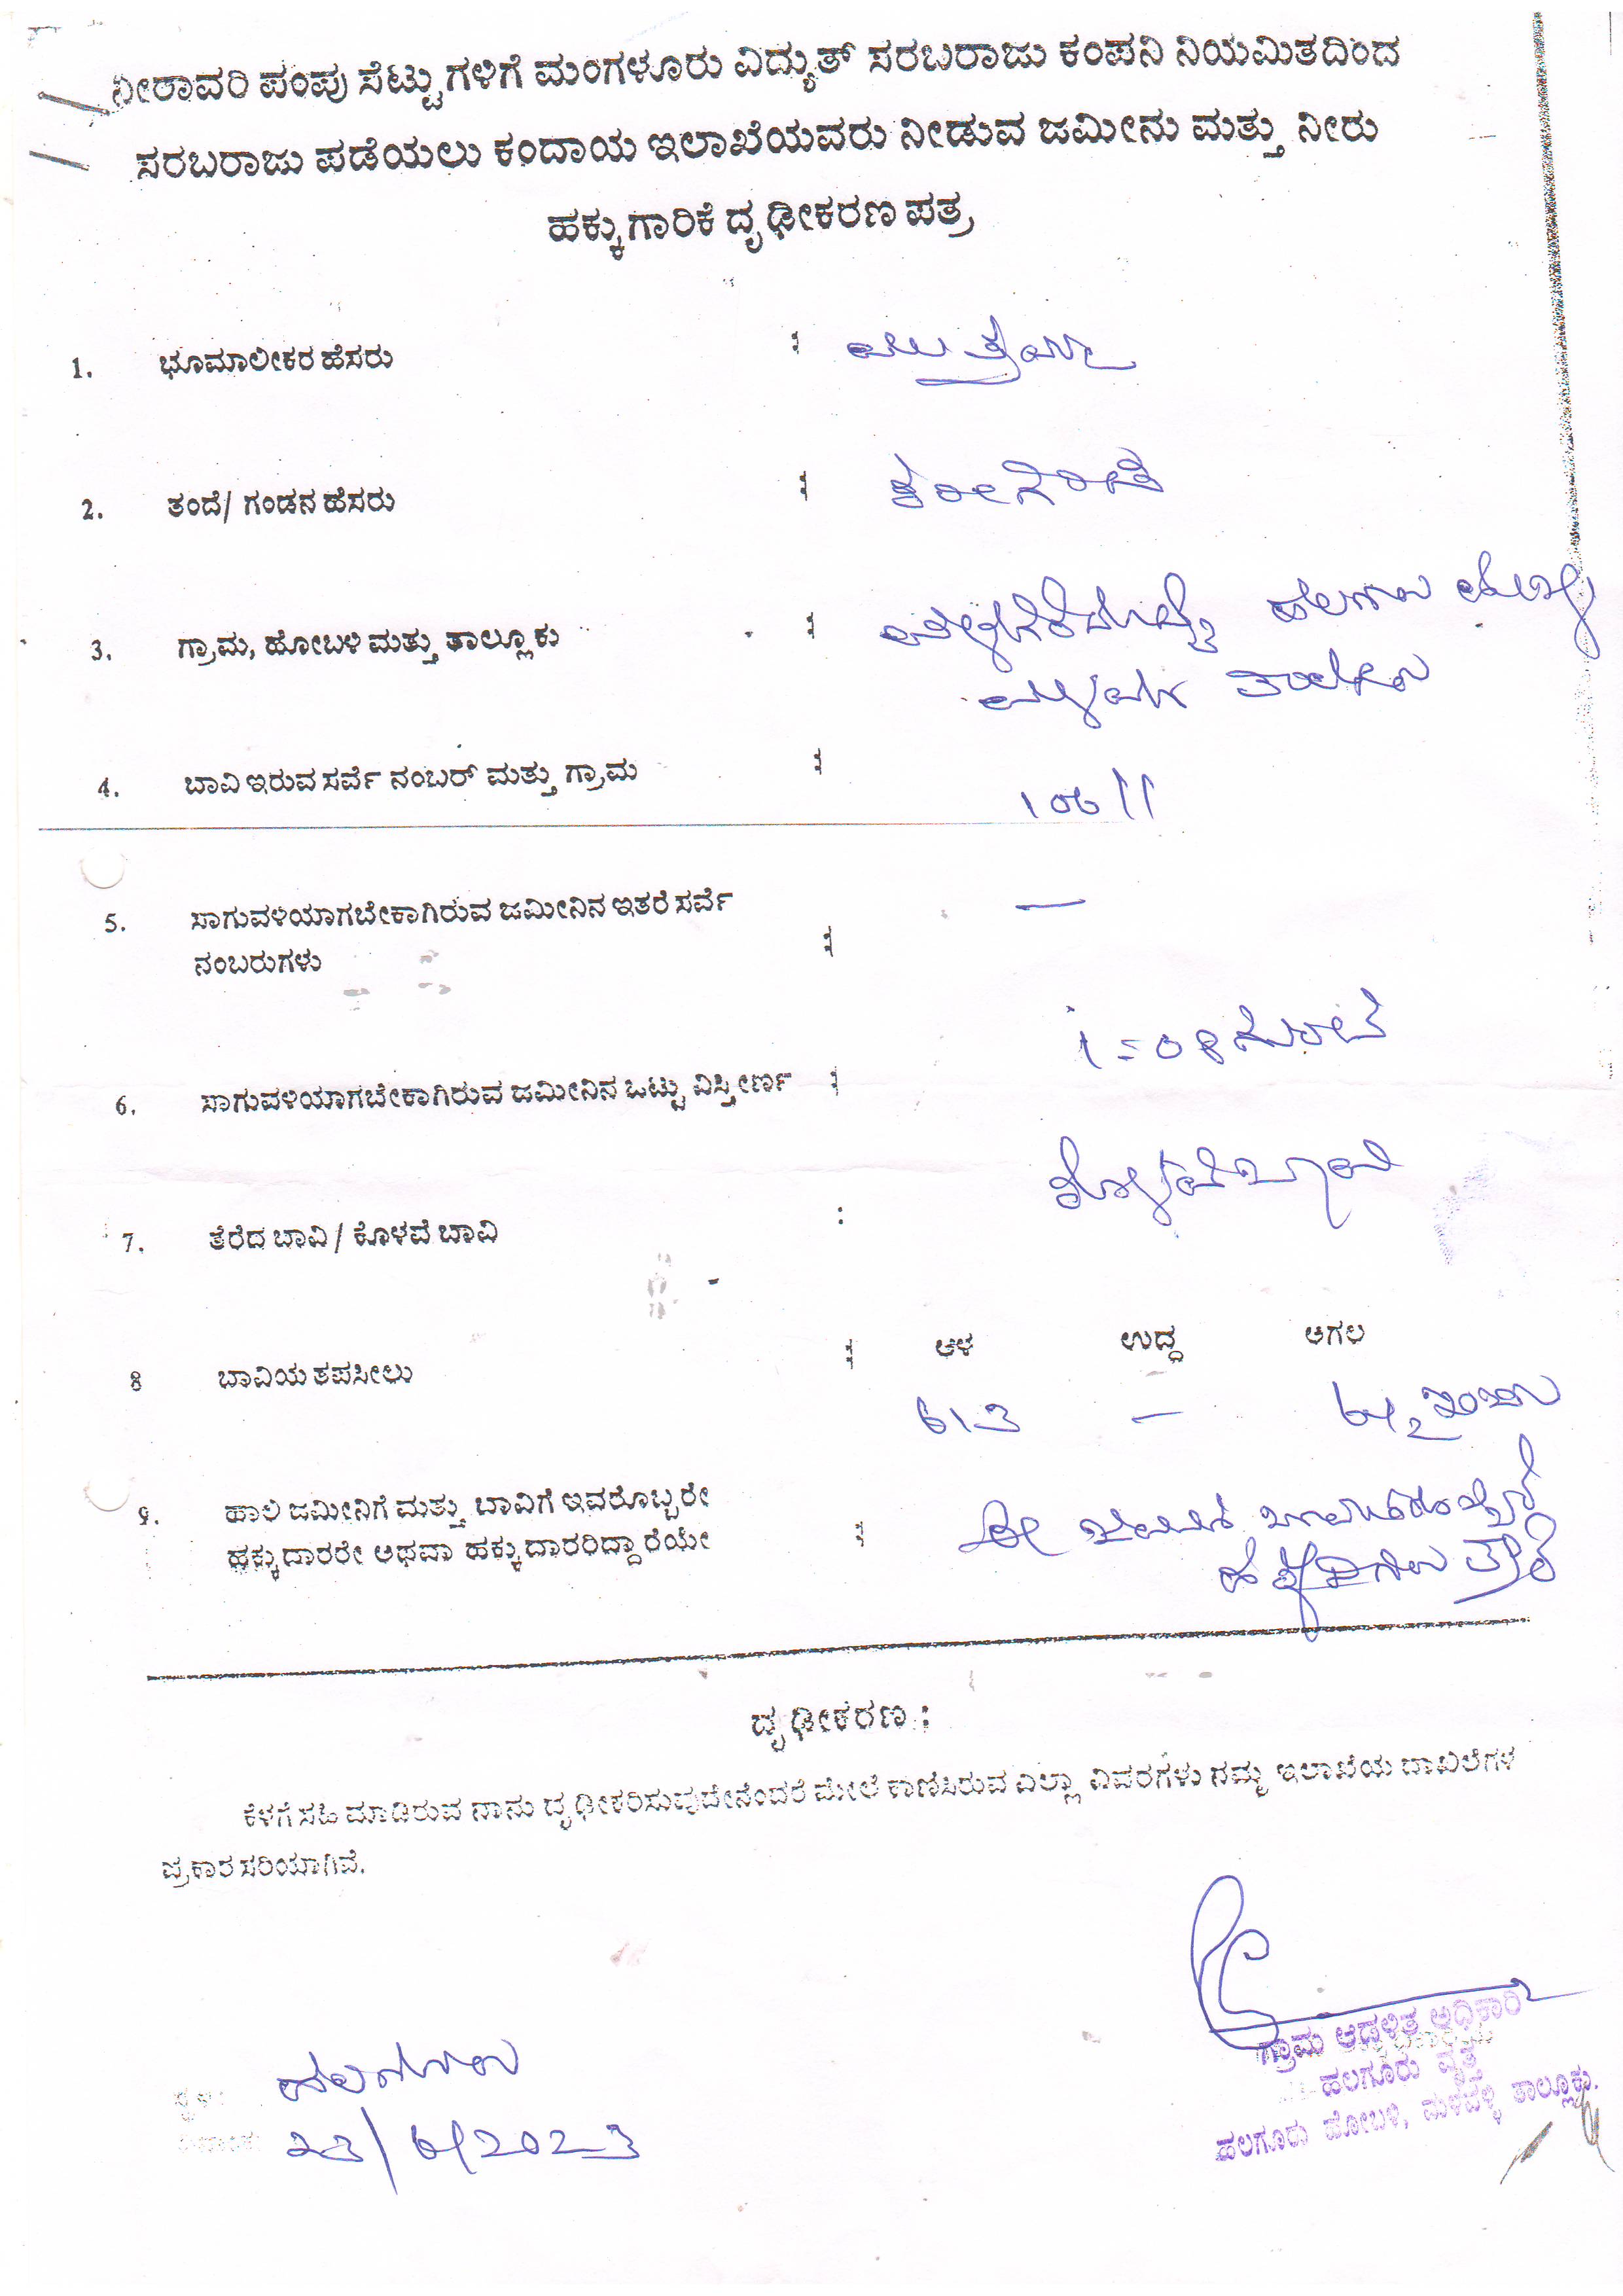 ನೀರಾವರಿ ಪಂಪು ಸೆಟ್ಟುಗಳಿಗೆ ಮಂಗಳೂರು ವಿದ್ಯುತ್ ಸರಬರಾಜು ಕಂಪನಿ ನಿಯಮಿತದಿಂದ
ಸರಬರಾಜು ಪಡೆಯಲು ಕಂದಾಯ ಇಲಾಖೆಯವರು ನೀಡುವ ಜಮೀನು ಮತ್ತು ನೀರು
ಹಕ್ಕುಗಾರಿಕೆ ದೃಢೀಕರಣ ಪತ್ರ
1. ಭೂಮಾಲೀಕರ ಹೆಸರು :
2. ತಂದೆ/ ಗಂಡನ ಹೆಸರು :
3. ಗ್ರಾಮ, ಹೋಬಳಿ ಮತ್ತು ತಾಲ್ಲೂಕು : ಹಲಗೂರು
4. ಬಾವಿ ಇರುವ ಸರ್ವೆ ನಂಬರ್ ಮತ್ತು ಗ್ರಾಮ :
5. ಸಾಗುವಳಿಯಾಗಬೇಕಾಗಿರುವ ಜಮೀನಿನ ಇತರೆ ಸರ್ವೆ —
ನಂಬರುಗಳು :
1=08 ಗುಂಟೆ
6. ಸಾಗುವಳಿಯಾಗಬೇಕಾಗಿರುವ ಜಮೀನಿನ ಒಟ್ಟು ವಿಸ್ತೀರ್ಣ :
ಕೊಳವೆ ಬಾವಿ
7. ತೆರೆದ ಬಾವಿ / ಕೊಳವೆ ಬಾವಿ :
8 ಬಾವಿಯ ತಪಸೀಲು : ಆಳ ಉದ್ದ ಅಗಲ
613 — 6½ ಇಂಚು
9. ಹಾಲಿ ಜಮೀನಿಗೆ ಮತ್ತು ಬಾವಿಗೆ ಇವರೊಬ್ಬರೇ
ಹಕ್ಕುದಾರರೇ ಅಥವಾ ಹಕ್ಕುದಾರರಿದ್ದಾರೆಯೇ :
ದೃಢೀಕರಣ :
ಕೆಳಗೆ ಸಹಿ ಮಾಡಿರುವ ನಾನು ದೃಢೀಕರಿಸುವುದೇನೆಂದರೆ ಮೇಲೆ ಕಾಣಿಸಿರುವ ಎಲ್ಲಾ ವಿವರಗಳು ನಮ್ಮ ಇಲಾಖೆಯ ದಾಖಲೆಗಳ
ಪ್ರಕಾರ ಸರಿಯಾಗಿವೆ.
ಗ್ರಾಮ ಆಡಳಿತ ಅಧಿಕಾರಿ
ಹಲಗೂರು ವೃತ್ತ
ಹಲಗೂರು ಹೋಬಳಿ, ಮಳವಳ್ಳಿ ತಾಲ್ಲೂಕು.
ಸ್ಥಳ: ಹಲಗೂರು
ದಿನಾಂಕ: 23/6/2023